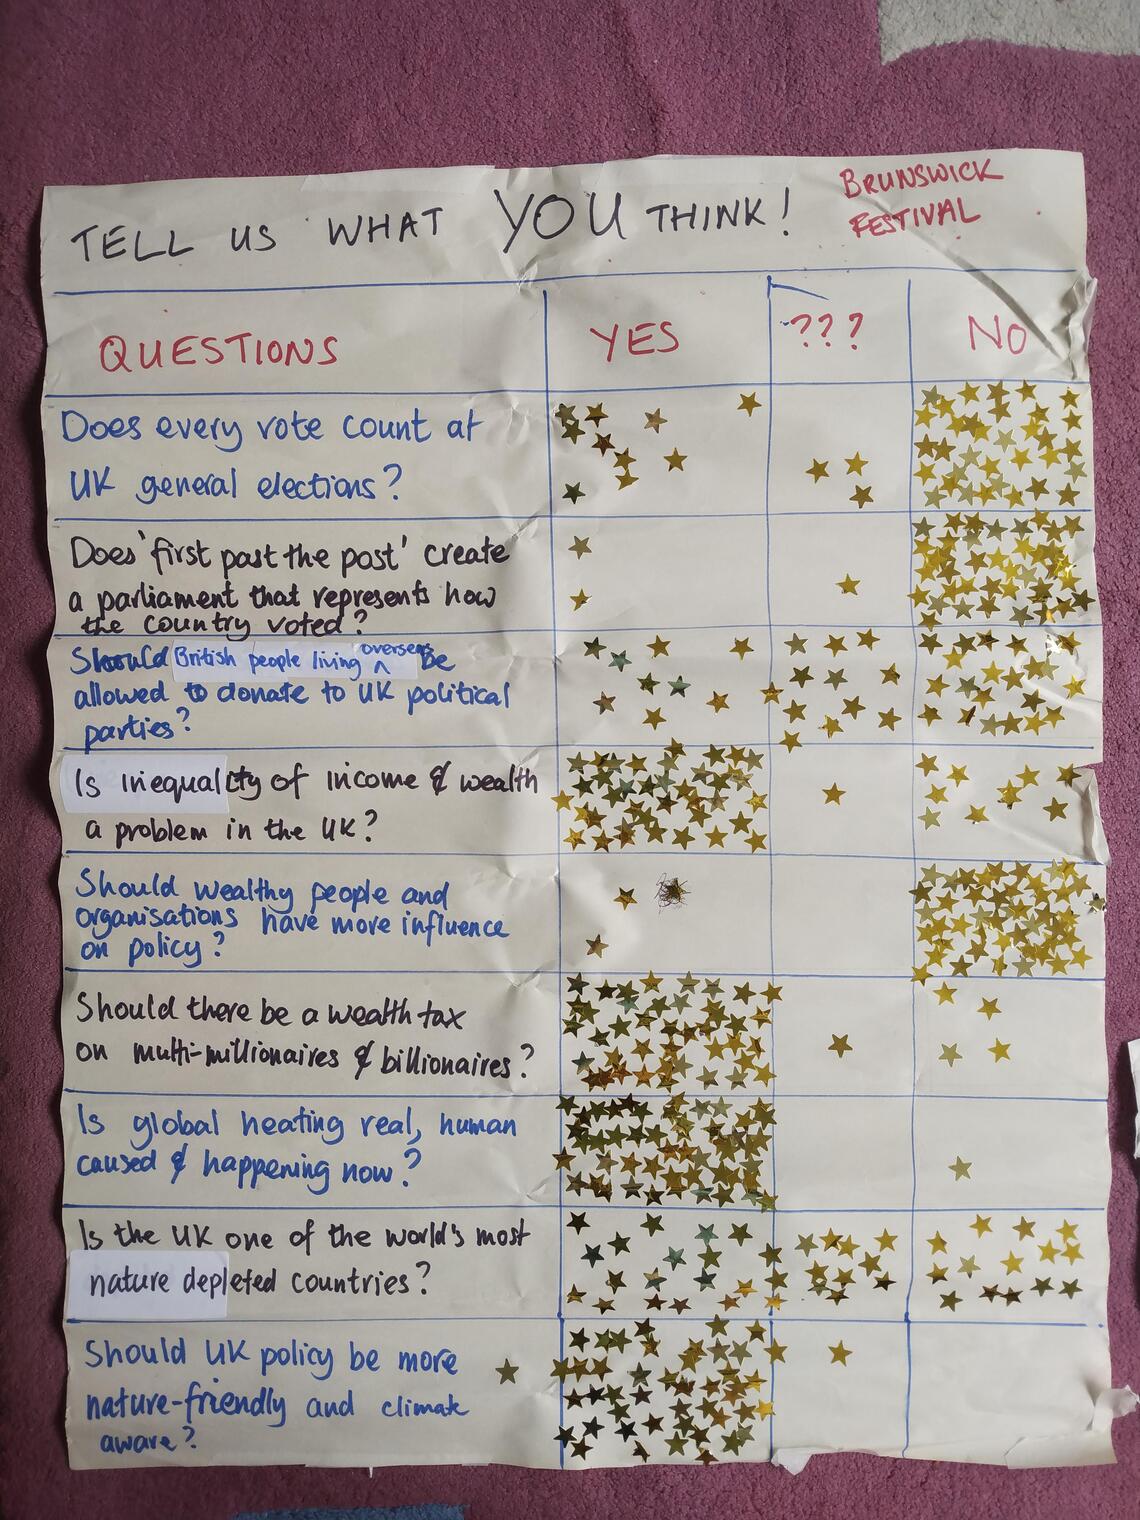 TELL US WHAT YOU THINK!
BRUNSWICK
FESTIVAL
QUESTIONS
YES
???
NO
Does every vote count at
UK general elections?
Does 'first past the post' create
a parliament that represents how
the country voted?
Should British people living overseas be
allowed to donate to UK political
parties?
Is inequality of income & wealth
a problem in the UK?
Should wealthy people and
organisations have more influence
on policy?
Should there be a wealth tax
on multi-millionaires & billionaires?
Is global heating real, human
caused & happening now?
Is the UK one of the world's most
nature depleted countries?
Should UK policy be more
nature-friendly and climate
aware?